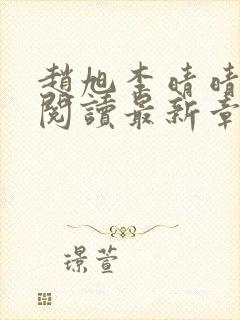 趙旭李晴晴
閱讀最新章
璟萱